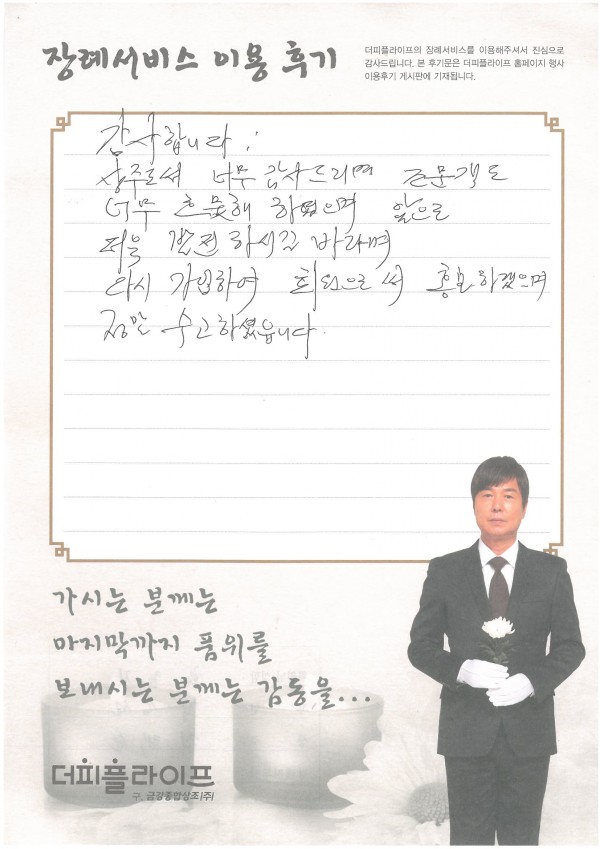 장례서비스 이용 후기
더피플라이프의 장례서비스를 이용해주셔서 진심으로
감사드립니다. 본 후기문은 더피플라이프 홈페이지 행사
이용후기 게시판에 기재됩니다.
감사합니다.
상주로써 너무 감사드리며 조문객도
너무 흐뭇해 하였으며 앞으로
더욱 발전하시길 바라며
다시 가입하여 회원으로써 홍보하겠으며
정말 수고하셨읍니다.
가시는 분께는
마지막까지 품위를
보내시는 분께는 감동을...
더피플라이프
구. 금강종합상조(주)